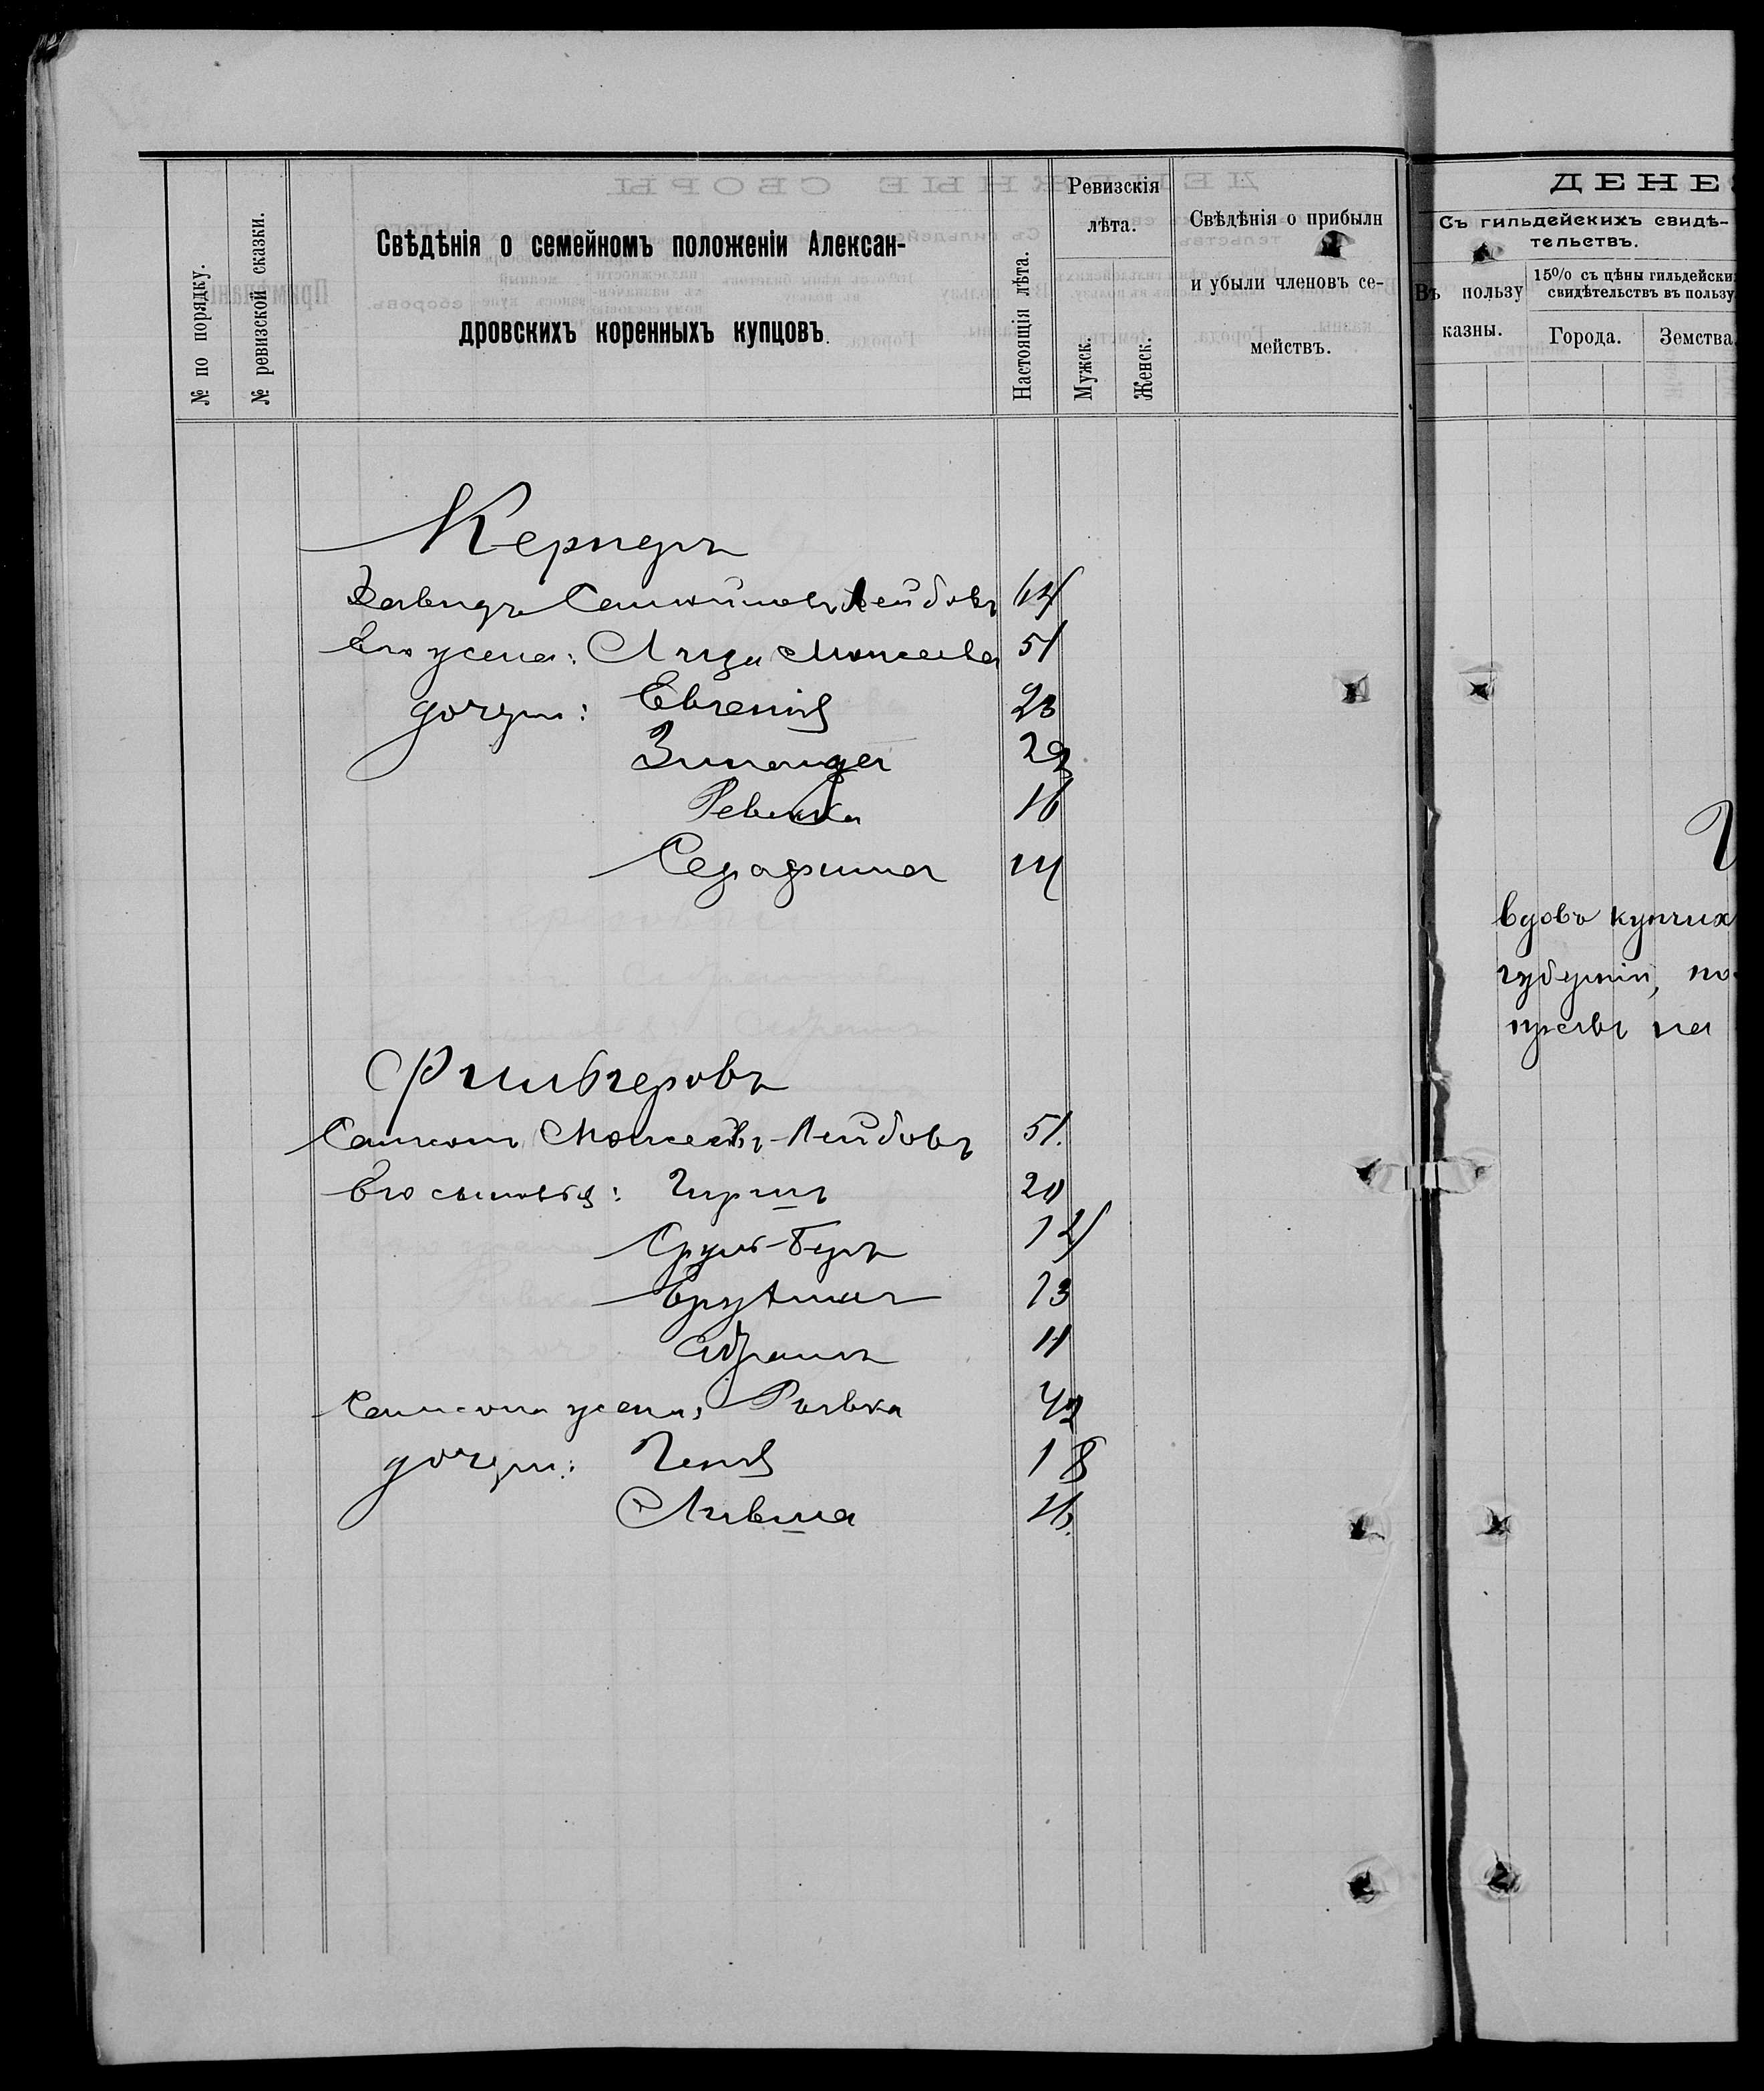 № по порядку.
№ ревизской сказки.
Свѣдѣнія о семейномъ положеніи Алексан-
дровскихъ коренныхъ купцовъ.
Настоящія лѣта.
Ревизскія
лѣта.
Мужск.
Женск.
Свѣдѣнія о прибыли
и убыли членовъ се-
мействъ.
Кернеръ
Давидъ Самойловъ Лейбовъ 64
Его жена: Лиза Моисеева 51
дочери: Евгенія 23
Зинаида 22
Ревека 16
Серафима 14
Самсонъ Моисеевъ-Лейбовъ 51.
Его сыновья: Гиршъ 20
Сруль-Беръ
13
Абрамъ 11
Самсона жена: Ривка 42
дочери: Геня 18
Ливша 16.
ДЕНЕ
Съ гильдейскихъ свидѣ-
тельствъ.
Въ пользу
казны.
15% съ цѣны гильдейски
свидѣтельствъ въ пользу
Города.
Земства.
вдовъ купчих
губерніи, по
на